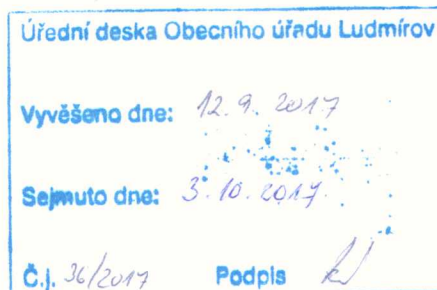 Úřední deska Obecního úřadu Ludmírov
Vyvěšeno dne: 12.9.2017
Sejmuto dne: 3.10.2017.
Č.j. 36/2017 Podpis